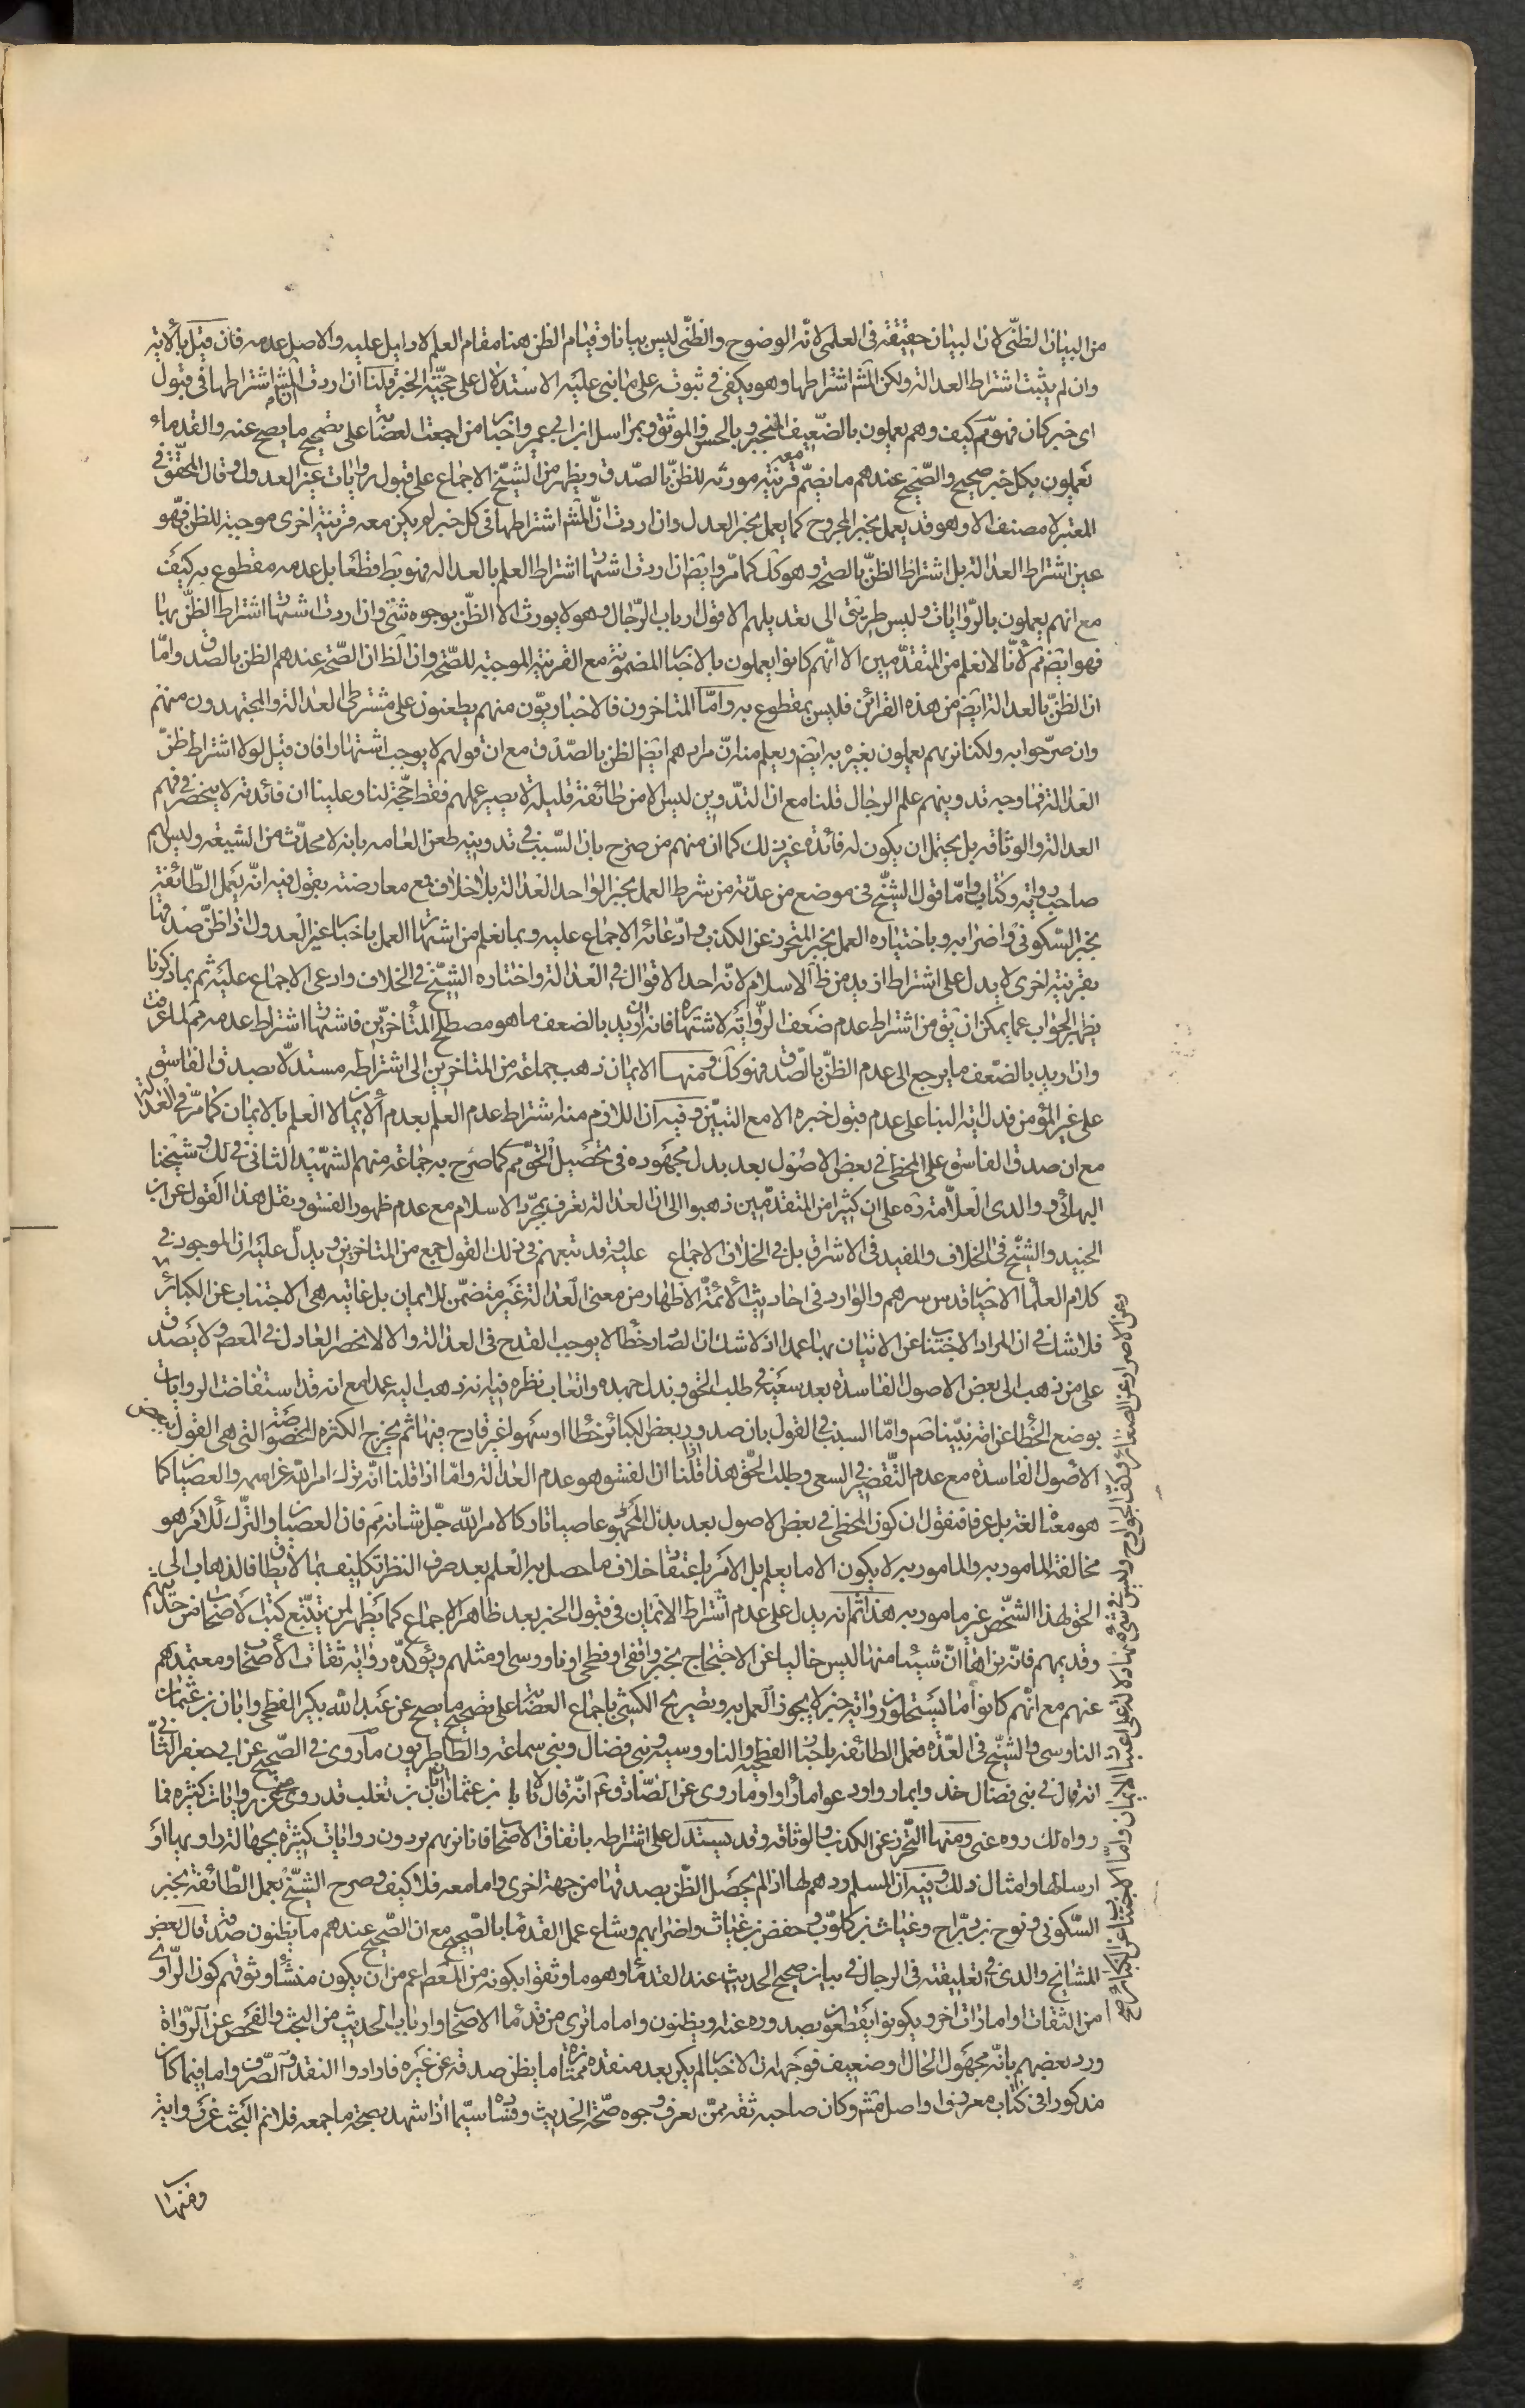 من البيان الظنّى لان البيان حقيقة فى العلمى لانّه الوضوح والظنّى ليس بيانا وقيام الظن هنا مقام العلم لا دليل عليه والاصل عدمه فان قيل بالاية
وان لم يثبت اشتراط العدالة ولكن المشم اشتراطها وهو يكفى فى ثبوته على ما بنى عليه الاستدلال على حجّيّة الخبر قلنا ان اردت ان المشم اشتراطها فى قبول
اى خبر كان فهو مم كيف وهم يعملون بالضّعيف المنجبر وبالحسن والموثق وبمراسل ابن ابى عمير واخبار من اجمعت العصابة على تصحيح ما يصح عنه والقدماء
يعملون بكل خبر صحيح والصّحيح عندهم ما ينضمّ معه قرينة مورثه للظنّ بالصّدق ويظهر من الشيخ الاجماع على قبول روايات غير العدول وقال المحقق فى
المعتبر لا مصنف الا وهو قد يعمل بخبر المجروح كما يعمل بخبر العدل وان اردت انّ المشم اشتراطها فى كل خبر لم يكن معه قرينة اخرى موجبة للظن فهو
عين اشتراط العدالة بل اشتراط الظنّ بالصحّة وهو كك كما مرّ وايضا ان اردت اشتهار اشتراط العلم بالعدالة فهو بط قطعا بل عدمه مقطوع به كيف
مع انهم يعملون بالرّوايات وليس طريق الى تعديلهم الا قول ارباب الرّجال وهو لا يورث الا الظنّ بوجوه شتّى وان اردت اشتهار اشتراط الظنّ بها
فهو ايض مم لانّا لا نعلم من المتقدّمين الا انّهم كانوا يعملون بالاخبار المضمونة مع القرينة الموجبة للصّحّة وان الظ ان الصّحّة عندهم الظن بالصدق وامّا
ان الظنّ بالعدالة ايض من هذه القرائن فليس بمقطوع به وامّا المتاخرون فالاخباريّون منهم يطعنون على مشترطى العدالة والمجتهدون منهم
وان صرّحوا به ولكنا نريهم يعملون بغيره به ايض ويعلم منه انّ مرادهم ايضا الظن بالصّدق مع ان قولهم لا يوجب اشتهارا فان قيل لولا اشتراط ظنّ
العدالة فما وجه تدوينهم علم الرجال قلنا مع ان التدوين ليس الا من طائفة قليلة لا يصير عملهم فقط حجّة لنا وعلينا ان فائدته لا ينحصر فى فهم
العدالة والوثاقة بل يحتمل ان يكون له فائدة غير ذلك كما ان منهم من صرّح بان السّبب فى تدوينه طعن العامه بانه لا محدّث من الشيعة وليس لهم
صاحب رواية وكتاب وامّا قول الشيخ فى موضع من عدّته من شرط العمل بخبر الواحد العدالة بلا خلاف فمع معارضته بقوله فيه انّه يعمل الطّائفة
بخبر السّكونى واضرابه وباختياره العمل بخبر المتحرز عن الكذب وادّعائه الاجماع عليه وبما نعلم من اشتهار العمل باخبار غير العدول اذا ظنّ صدقها
بقرينة اخرى لا يدل على اشتراط ازيد من ظ الاسلام لانّه احد الاقوال فى العدالة واختاره الشيخ فى الخلاف وادعى الاجماع عليه ثم بما ذكرنا
يظهر الجواب عما يمكن ان يق من اشتراط عدم ضعف الرواية لاشتهاره فانه ان اريد بالضعف ما هو مصطلح المتأخرين فاشتهار اشتراط عدمه مم لما عرفت
وان اريد بالضّعف ما يرجع الى عدم الظنّ بالصّدق فهو كك ومنها الايمان ذهب جماعة من المتاخرين الى اشتراطه مستدلّا بصدق الفاسق
على غير المؤمن فدل اية النبأ على عدم قبول خبره الا مع التبيّن وفيه ان اللازم منه اشتراط عدم العلم بعدم الايمان لا العلم بالايمان كما مرّ فى العدالة
مع ان صدق الفاسق على المخطى فى بعض الاصول بعد بذل مجهوده فى تحصيل الحق مم كما صرح به جماعة منهم الشهيد الثانى فى لك وشيخنا
البهائى ووالدى العلّامة ره على ان كثيرا من المتقدّمين ذهبوا الى ان العدالة تعرف بمجرّد الاسلام مع عدم ظهور الفسق ونقل هذا القول عن ابن
الجنيد والشيخ فى الخلاف والمفيد فى الاشراق بل فى الخلاف الاجماع عليه وقد تبعهم فى ذلك القول جمع من المتاخرين ويدل عليه ان الموجود فى
كلام العلماء الاخيار قدس سرهم والوارد فى احاديث الائمّة الاطهار من معنى العدالة غير متضمّن للايمان بل غايته هى الاجتناب عن الكبائر
فلا شك فى ان المراد الاجتناب عن الاتيان بها عمدا اذ لا شك ان الصّادر خطأ لا يوجب القدح فى العدالة والا لانحصر العادل فى المعصوم ولا يصدق
على من ذهب الى بعض الاصول الفاسدة بعد سعيه فى طلب الحق وبذل جهده واتعاب نظره فيه انه ذهب اليه عمدا مع انه قد استفاضت الروايات
بوضع الخطا عن امة نبيّنا صم وامّا السبب فى القول بان صدور بعض الكبائر خطا او سهوا غير قادح فيها ثم يخرج الكثرة المخصوصة التى هى القول ببعض
الاصول الفاسدة مع عدم التّقصير فى السعى وطلب الحق هذا قلنا ان الفسق هو عدم العدالة وامّا اذا قلنا انّه ترك امر الله عز اسمه والعصيان كما
هو معناه لغة بل عرفا فنقول ان كون المخطى فى بعض الاصول بعد بذل المجهود عاصيا تاركا لامر الله جل شانه مم فان العصيان والترك للامر هو
مخالفة المامور به والمامور به لا يكون الا ما يعلم بل الامر باعتقاد خلاف ما حصل به العلم بعد صرف النظر تكليف بما لا يطاق فالذهاب الى
الحق لهذا الشخص غير مامور به هذا ثم انه يدل على عدم اشتراط الايمان فى قبول الخبر بعد ظاهر الاجماع كما يظهر لمن يتتبّع كتب الاصحاب من حديثهم
وقديمهم فانّه يراها انّ شيئا منها ليس خاليا عن الاحتجاج بخبر واقفى او فطحى او ناووسى او مثلهم ويؤكدّه رواية ثقات الاصحاب ومعتمدهم
عنهم مع انّهم كانوا ما يستحلون رواية خبر لا يجوز العمل به وتصريح الكشى باجماع العصابة على تصحيح ما يصح عن عبد الله بكير الفطحى وابان بن عثمان
الناوسى والشيخ فى العدّة فعمل الطائفة باخبار الفطحية والناووسية وبنى فضال وبنى سماعة والطاطريون ما روى فى الصّحيح عن ابى جعفر الثانى
انه قال فى بنى فضال خذوا بما رووا ودعوا ما راوا وما روى عن الصّادق عم انّه قال لابان بن عثمان ان ابان بن تغلب قد روى عنى روايات كثيرة فما
رواه لك روه عنى ومنها التحرّز عن الكذب والوثاقة وقد يستدل على اشتراطه باتفاق الاصحاب فانا نريهم يردون روايات كثيرة بجهالة راويها او
ارسالها وامثال ذلك وفيه ان المسلم ردهم لها اذا لم يحصل الظّن بصدقها من جهة اخرى واما معه فلا كيف وصرح الشيخ بعمل الطّائفة بخبر
السّكونى ونوح بن درّاج وغياث بن كلّوب وحفص بن غياث واضرابهم وشاع عمل القدماء بالصّحيح مع ان الصّحيح عندهم ما يظنون صدقه قال بعض
المشايخ والدى فى تعليقته فى الرجال فى بيان صحيح الحديث عند القدماء وهو ما وثقوا بكونه من المعصوم اعم من ان يكون منشأ وثوقهم كون الرّاوى
من الثقات او امارات اخر ويكونوا يقطعون بصدوره عنه او يظنون واما ما ترى من قدماء الاصحاب وارباب الحديث من البحث والفحص عن الرّواة
ورد بعضهم بانّه مجهول الحال او ضعيف فوجهه ان الاخبار لم يكن بعد منقده ممتازه ما يظن صدقه عن غيره فارادوا النقد والصّرف واما فيما كان
مذكورا فى كتاب معروف او اصل مشم وكان صاحبه ثقه ممّن يعرف وجوه صّحّة الحديث وفساده سيّما اذا شهد بصحّة ما جمعه فلا نم البحث عن رواية
ومنها
وعن الاصرار عن الصغائر وكف الجوارح وليس فى شىء منها دلالة على اعتبار الايمان وامّا الاجتناب عن الكبائر صح